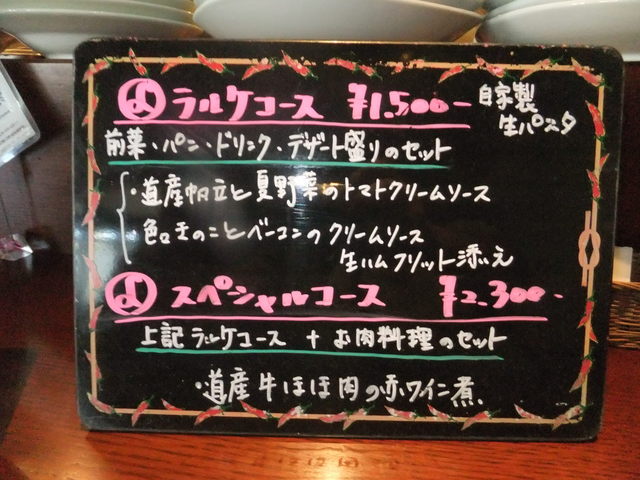 よ ラルケコース ¥1,500-
自家製
生パスタ
前菜・パン・ドリンク・デザート盛りのセット
・道産帆立と夏野菜のトマトクリームソース
・色々きのことベーコンのクリームソース
生ハムフリット添え
よ スペシャルコース ¥2,300-
上記ラルケコース + お肉料理のセット
・道産牛ほほ肉の赤ワイン煮